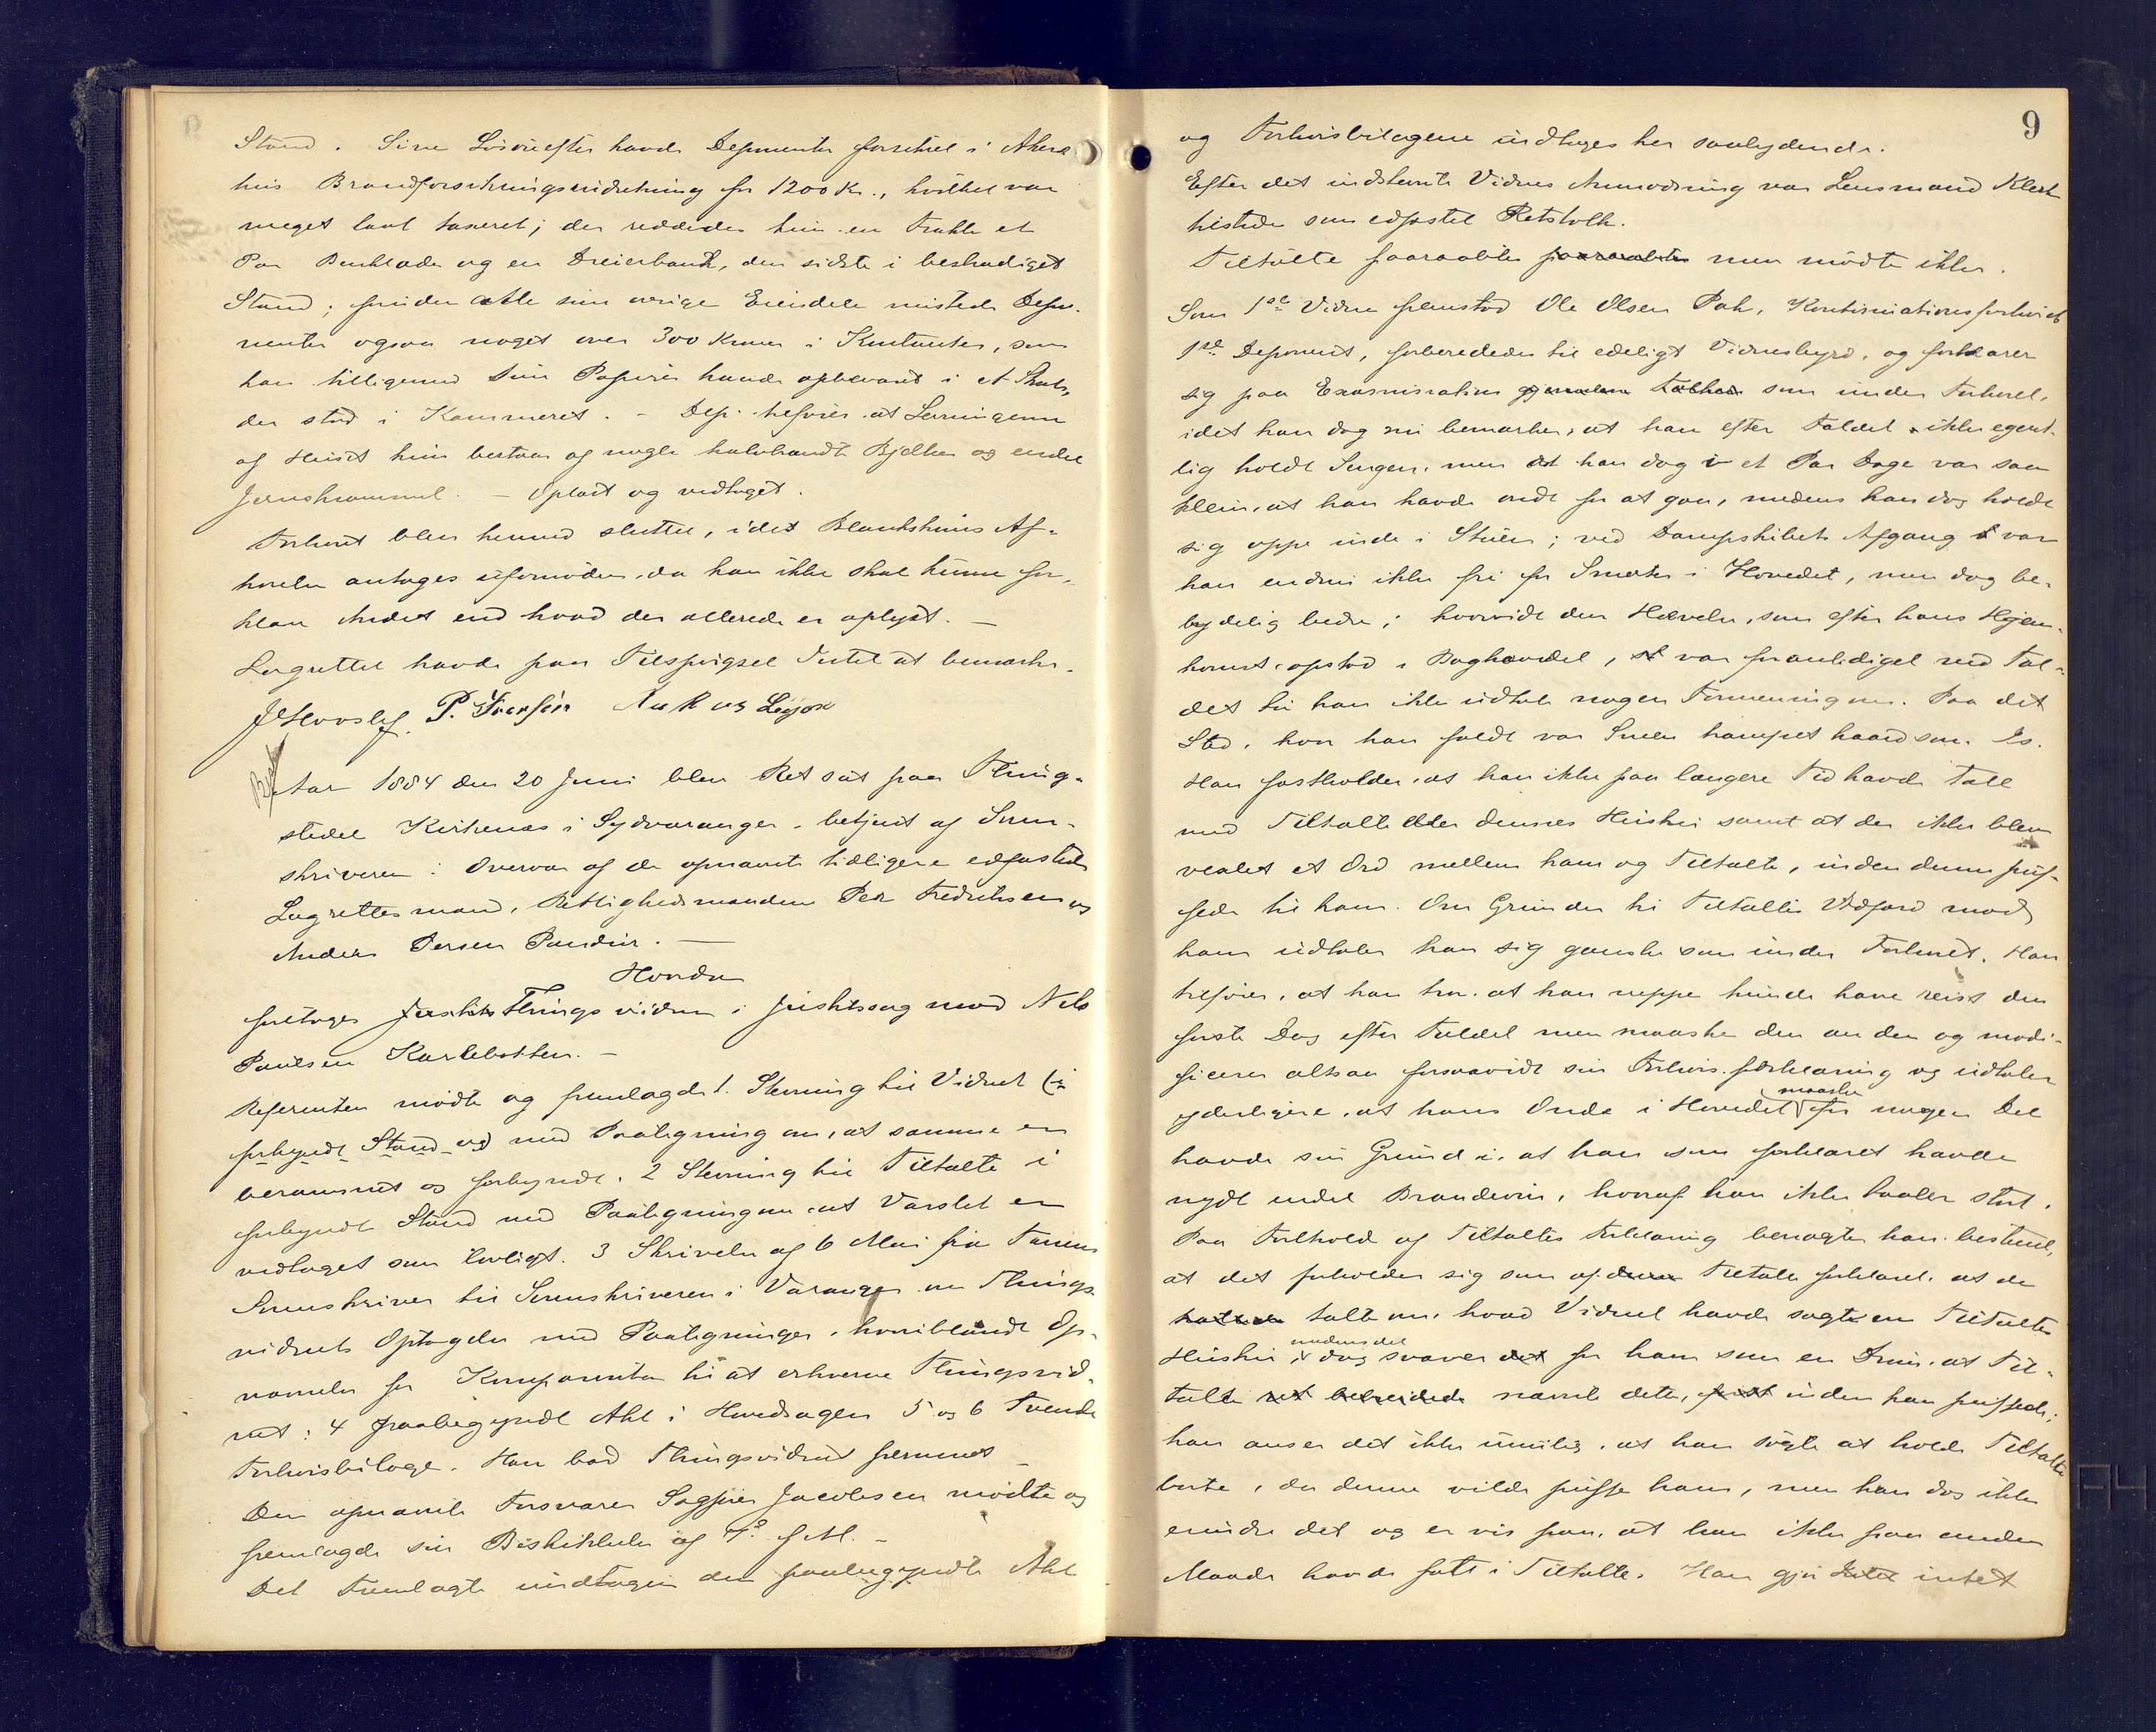 Stand. Sine Løsøreefter havde Deponenten forsikret i Akers
hus Brandforsikringsindretning for 1200 Kr., hvilket var
meget lavt taxeret; der reddedes kun en Frakke et
Par Benklæder og en Dreierbænk, den sidste i beskadiget
Stand; foruden alle sine øvrige Eiendele mistede Depo-
nenten ogsaa noget over 300 Kroner i Kontanter, som
han tilligemed sine Papirer havde opbevaret i et Skab,
der stod i Kammeret. – Dep. tilføier at Levningerne
af Huset kun bestaar af nogle halvbrændte Bjelker og endel
Jernskrammel. – Oplæst og vedtaget.
Forhøret blev hermed sluttet, idet Blankshuus Af-
hørelse antages ufornøden, da han ikke skal kunne for-
klare Andet end hvad der allerede er oplyst. –
Lagrettet havde paa Tilspørgsel Intet at bemærke.
P. Iversen
Aar 1884 den 20 Juni blev Ret sat paa Thing-
stedet Kirkenæs i Sydvaranger, betjent af Soren-
skriveren i Overvær af de opnævnte tidligere edfæstede
Lagrettesmænd, Rettighedsmændene Per Fredriksen og
Anders Persen
Hvorda
foretoges Thingsvidne i Justitssag mod Nils
Paulsen Karlebotten. –
Referenten mødte og fremlagde 1. Stevning til Vidnet (i
forkyndt Stand og) med Paategning om, at samme er
berammet og forkyndt. 2 Stevning til Tiltalte i
forkyndt Stand med Paategning om at Varslet er
vedtaget som lovligt. 3 Skrivelse af 6 Mai fra Tanens
Sorenskriver til Sorenskriveren i Varanger om Things-
vidnets Optagelse med Paategninger, hvoriblandt Op-
nævnelse for Komparenten til at erhverve Thingsvid-
net: 4 paabegyndt Akt i Hovedsagen 5 og 6 Tvende
Forhørsbilage. Han bad Thingsvidnet fremmet –
Den opnævnte Forsvarer Sagfører Jacobsen mødte og
fremlagde sin Beskikkelse af 7de f. M. –
Det Fremlagte undtagen den paabegyndte Akt
9
og Forhørsbilagene indtages her saalydende.
Efter det indstevnte Vidnes Anmodning var Lensmand Klerk
tilstede som edfæstet Retstolk.
Tiltalte paaraabtes paaraabtes men mødte ikke.
Som 1ste Vidne fremstod Ole Olsen Pak, Kontinuationsforhørets
1ste Deponent, forberededes til edeligt Vidnesbyrd, og forklarer
sig paa Examination som under Forhøret,
idet han dog nu bemærker, at han efter Faldet ikke egent-
lig holdt Sengen, men at han dog i et Par Dage var saa
klein, at han havde ondt for at gaa, medens han dog holdt
sig oppe inde i Stuen; ved Dampskibets Afgang var
han endnu ikke fri for Smerter i Hovedet, men dog be-
tydelig bedre; hvorvidt den Hævelse, som efter hans Hjem-
komst opstod i Baghovedet, var foranlediget ved Fal-
det tør han ikke udtale nogen Formening om. Paa det
Sted, hvor han faldt var Sneen trampet haard som Is.
Han fastholder, at han ikke paa længere Tid havde talt
med Tiltalte eller dennes Hustru samt at der ikke blev
vexlet et Ord mellem ham og Tiltalte, inden denne puf-
fede til ham. Om Grunden til Tiltaltes Adfærd mod
ham udtaler han sig ganske som under Forhøret. Han
tilføier, at han tror, at han neppe kunde have reist den
første Dag efter Faldet men maaske den anden og modi-
ficerer altsaa forsaavidt sin Forhørsforklaring og udtaler
yderligere, at hans Onde i Hovedet maaske for nogen Del
havde sin Grund i, at han som forklaret havde
nydt endel Brændevin, hvoraf han ikke taaler stort.
Paa Forhold af Tiltaltes Forklaring benægter han bestemt,
at det forholder sig som af Tiltalte forklaret, at de
talte om, hvad Vidnet havde sagt om Tiltaltes
Hustru, medens det dog svæver for ham som en Drøm, at Til-
talte nævnte dette, inden han puffede;
han anser det ikke umulig, at han søgte at holde Tiltalte
borte, da denne vilde puffe ham, men kan dog ikke
erindre det og er vis paa, at han ikke paa anden
Maade havde fat i Tiltalte. Han gjør intet